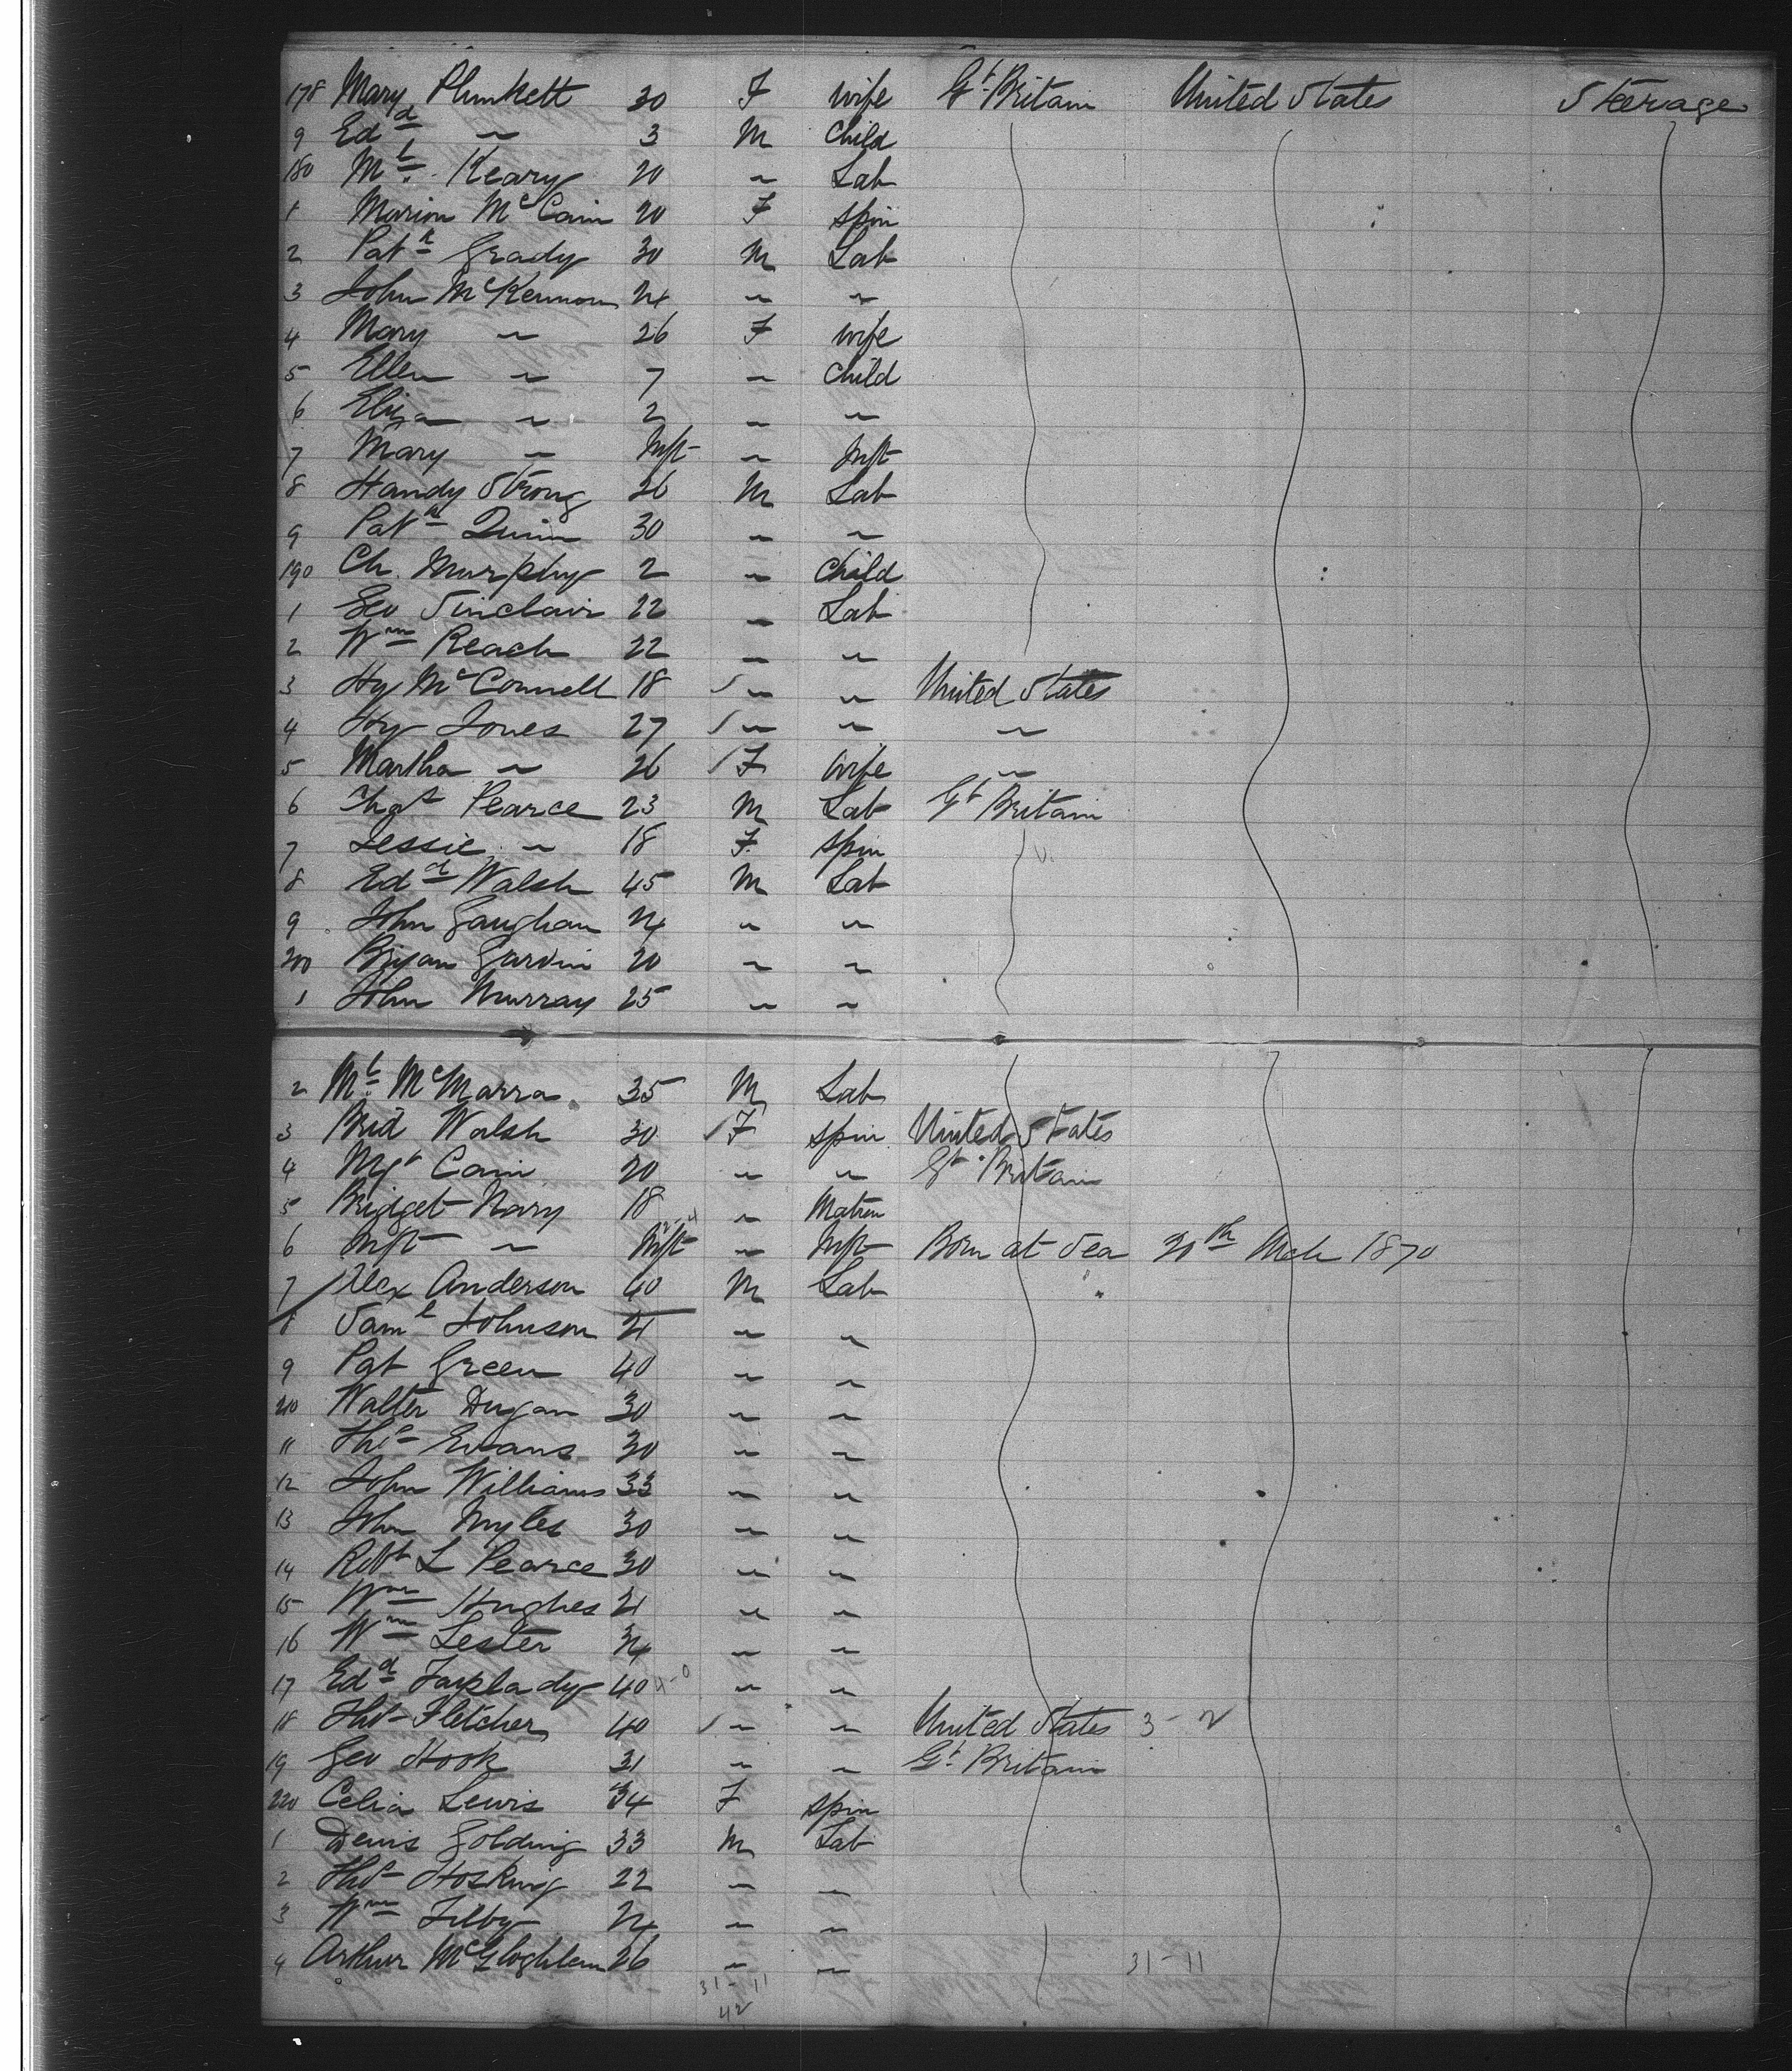 178 Mary Plunkett 30 F wife Gt Britain United States Steerage
9 Edd " 3 M child
180 Ml Keary 20 " Lab
1 Marion McCain 20 F spin
2 Patk Grady 30 M Lab
3 John McKennon 24 " "
4 Mary " 26 F wife
5 Ellen " 7 " child
6 Eliza " 2 " "
7 Mary " Inft " Inft
8 Handy Strong 26 M Lab
9 Patk Quinn 30 " "
190 Ch. Murphy 2 " child
1 Geo Sinclair 22 " Lab
2 Wm Reach 22 " "
3 Hy McConnell 18 " " United States
4 Hy Jones 27 " " "
5 Martha " 26 F wife "
6 Chas Pearce 23 M Lab Gt Britain
7 Jessie " 18 F spin
8 Edd Walsh 45 M Lab
9 John Gaughan 24 " "
200 Bryan Garvin 20 " "
1 John Murray 25 " "
2 Ml McMarra 35 M Lab
3 Brid Walsh 30 F spin United States
4 Mgt Cain 20 " " Gt Britain
5 Bridget Nary 18 " Matron
6 Inft " Inft " Inft Born at Sea 20th Mch 1870
7 Alex Anderson 40 M Lab
8 Saml Johnson 21 " "
9 Pat Green 40 " "
210 Walter Dugan 30 " "
11 Thos Evans 30 " "
12 John Williams 33 " "
13 John Myles 30 " "
14 Robt L Pearce 30 " "
15 Wm Hughes 21 " "
16 Wm Lester 34 " "
17 Edd 40 " "
18 Thos Fletcher 40 " " United States 3-2
19 Geo Hook 31 " " Gt Britain
220 Celia Lewis 34 F spin
1 Denis Golding 33 M Lab
2 Thos Hosking 22 " "
3 Wm Filby 24 " "
4 Arthur McGloghlem 26 " " 31-11
31-11
42